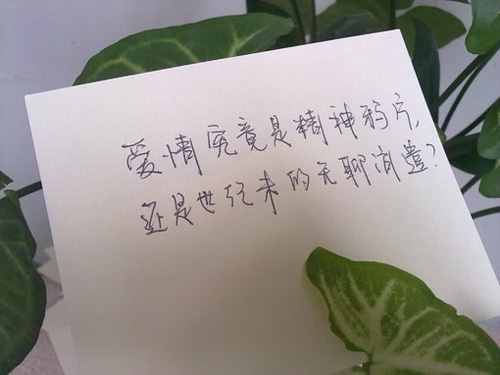 爱情究竟是精神鸦片,
还是世纪末的无聊消遣?